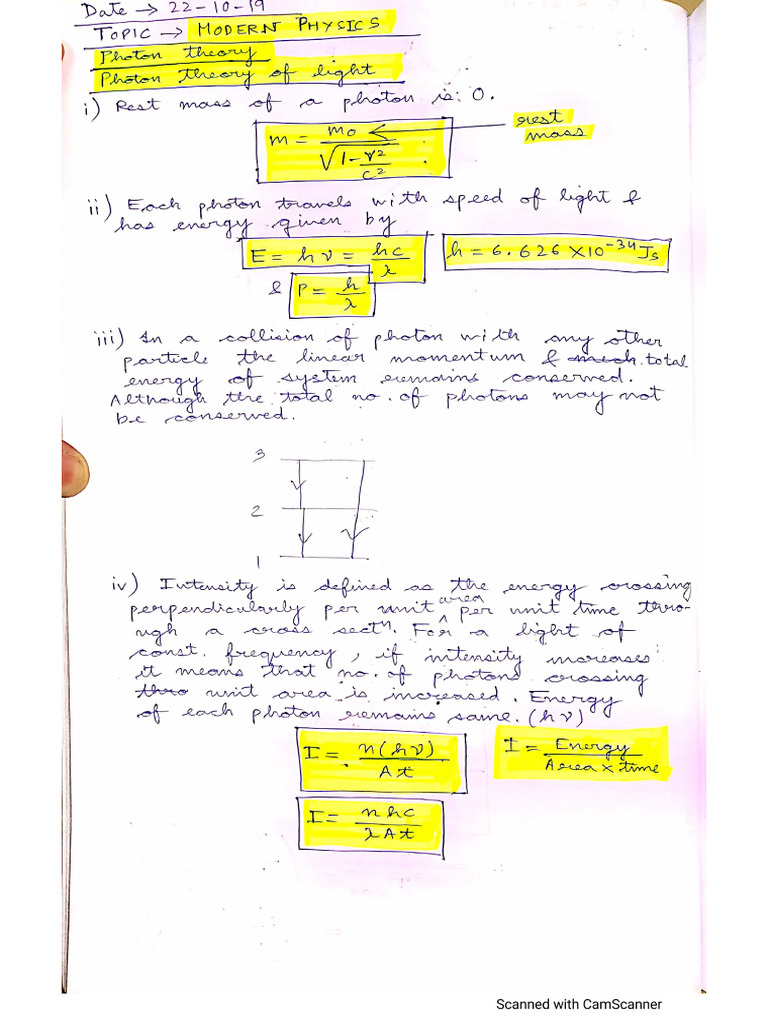 Date → 22-10-19
TOPIC → MODERN PHYSICS
Photon theory
Photon theory of light
i) Rest mass of a photon is: 0.
m = m₀ / √(1 - v²/c²)
rest
mass
ii) Each photon travels with speed of light &
has energy given by
E = hν = hc/λ
h = 6.626 × 10⁻³⁴ Js
& P = h/λ
iii) In a collision of photon with any other
particle the linear momentum & mech. total
energy of system remains conserved.
Although the total no. of photons may not
be conserved.
3
2
1
iv) Intensity is defined as the energy crossing
perpendicularly per unit area per unit time thro-
ugh a cross sectⁿ. For a light of
const. frequency, if intensity increases
it means that no. of photons crossing
thro unit area is increased. Energy
of each photon remains same. (hν)
I = n(hν) / At
I = Energy / Area × time
I = nhc / λAt
Scanned with CamScanner